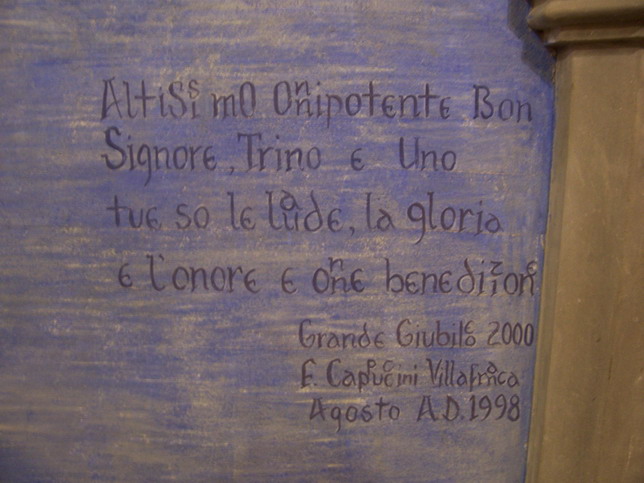 Altissimo Onnipotente Bon
Signore, Trino e Uno
tue so le laude, la gloria
e l'onore e onne benedizione
Grande Giubileo 2000
F. Cappuccini Villafranca
Agosto A.D. 1998